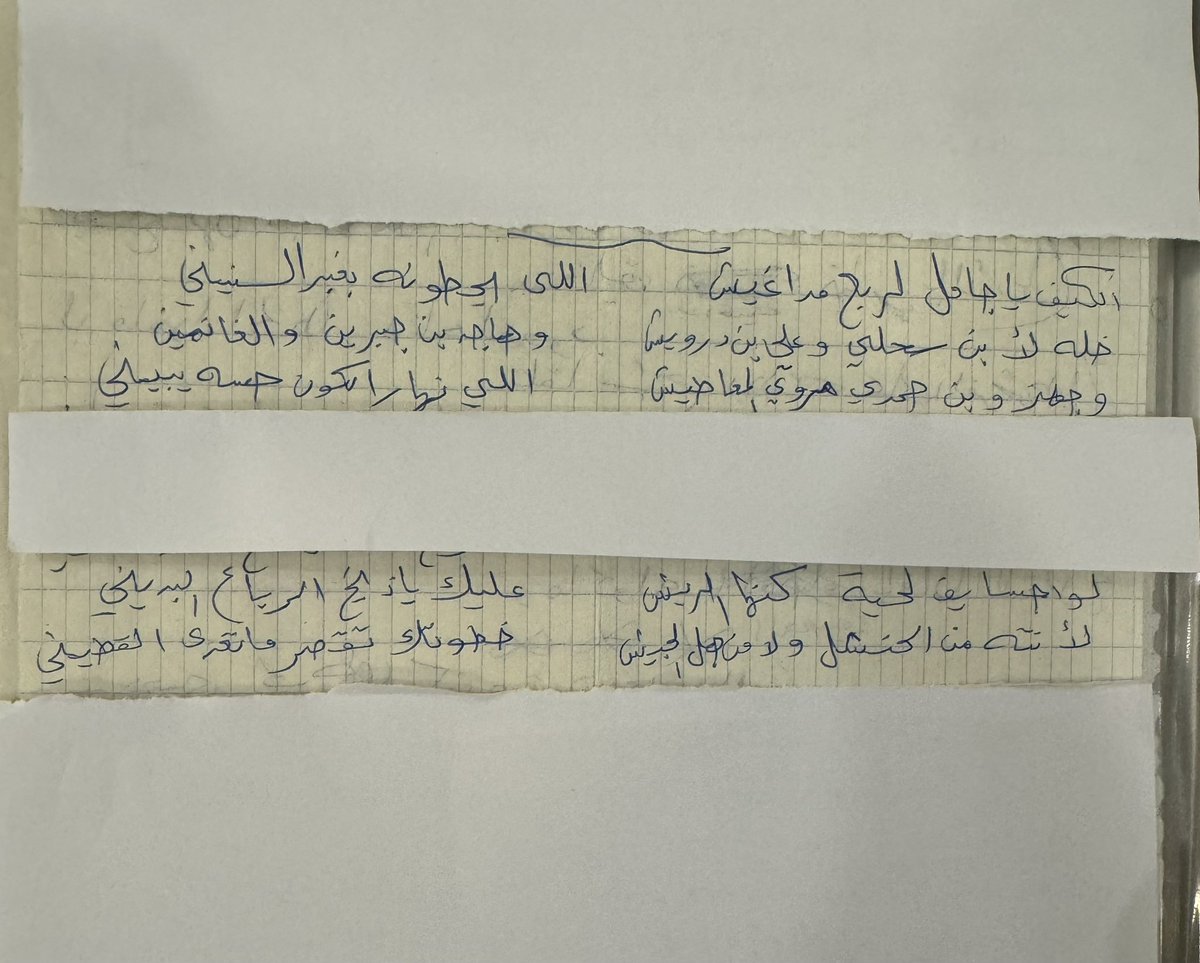 الكيف يا جامل لربع مداغيش اللى يحطونه بغبر السنيني
خله لأبن سحلي وعلي بن درويش وهاجد بن جبرين والغانمين
وجهز وبن حمدي مروي المعاطيش اللي نهار الكون حسه يبيني
لواحسايف لحية كنها الريش عليك ياذ الرباع البديني
لأنته من الحنشل ولا من هل الجيش خطوتك تقصر ماتعدى القضيني